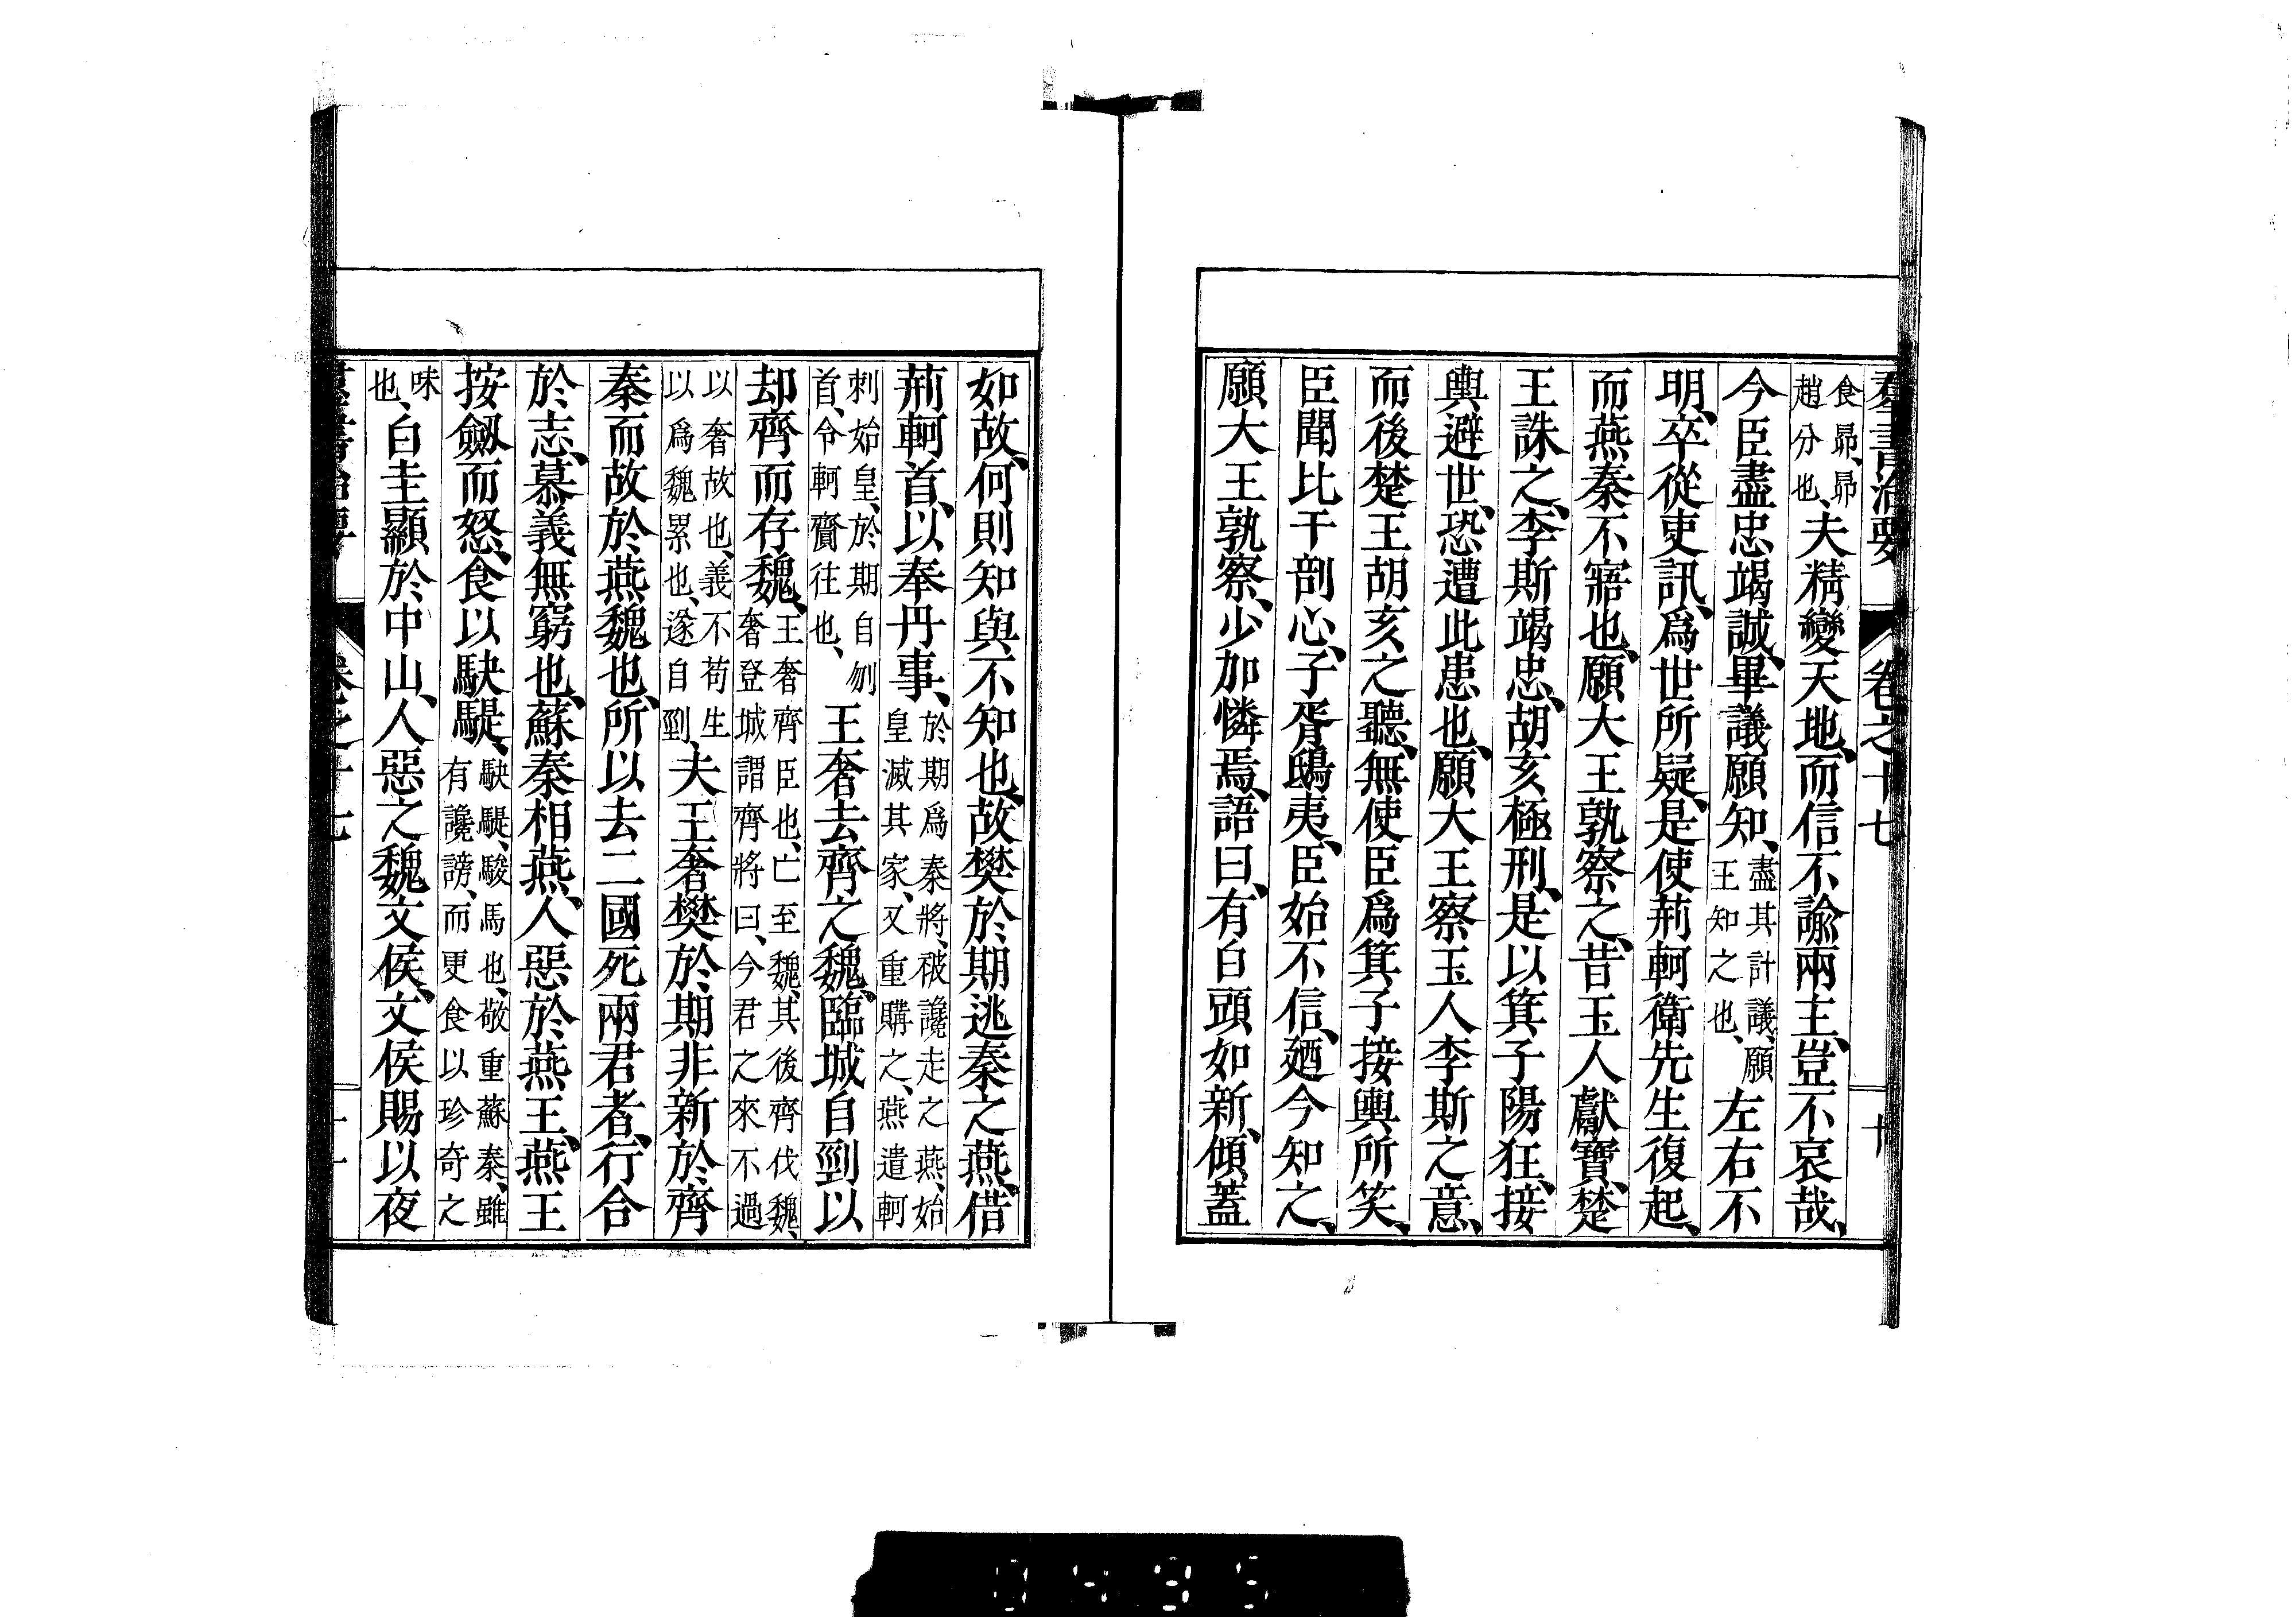 羣書治要 卷之十七 十
食昴、昴
趙分也、夫精變天地、而信不諭兩主、豈不哀哉、
今臣盡忠竭誠、畢議願知、盡其計議、願
王知之也、左右不
明、卒從吏訊、爲世所疑、是使荊軻衛先生復起、
而燕秦不寤也、願大王孰察之、昔玉人獻寶、楚
王誅之、李斯竭忠、胡亥極刑、是以箕子陽狂、接
輿避世、恐遭此患也、願大王察玉人李斯之意、
而後楚王胡亥之聽、無使臣爲箕子接輿所笑、
臣聞比干剖心、子胥鴟夷、臣始不信、廼今知之、
願大王孰察、少加憐焉、語曰、有白頭如新、傾蓋
如故、何則知與不知也、故樊於期逃秦之燕、借
荊軻首、以奉丹事、於期爲秦將、被讒走之燕、始
皇滅其家、又重購之、燕遣軻
刺始皇、於期自刎
首、令軻齎往也、王奢去齊之魏、臨城自剄以
却齊而存魏、王奢齊臣也、亡至魏、其後齊伐魏、
奢登城謂齊將曰、今君之來不過
以奢故也、義不苟生
以爲魏累也、遂自剄、夫王奢樊於期非新於齊
秦而故於燕魏也、所以去二國死兩君者、行合
於志、慕義無窮也、蘇秦相燕、人惡於燕王、燕王
按劔而怒、食以駃騠、駃騠、駿馬也、敬重蘇秦、雖
有讒謗、而更食以珍奇之
味
也、白圭顯於中山、人惡之魏文侯、文侯賜以夜